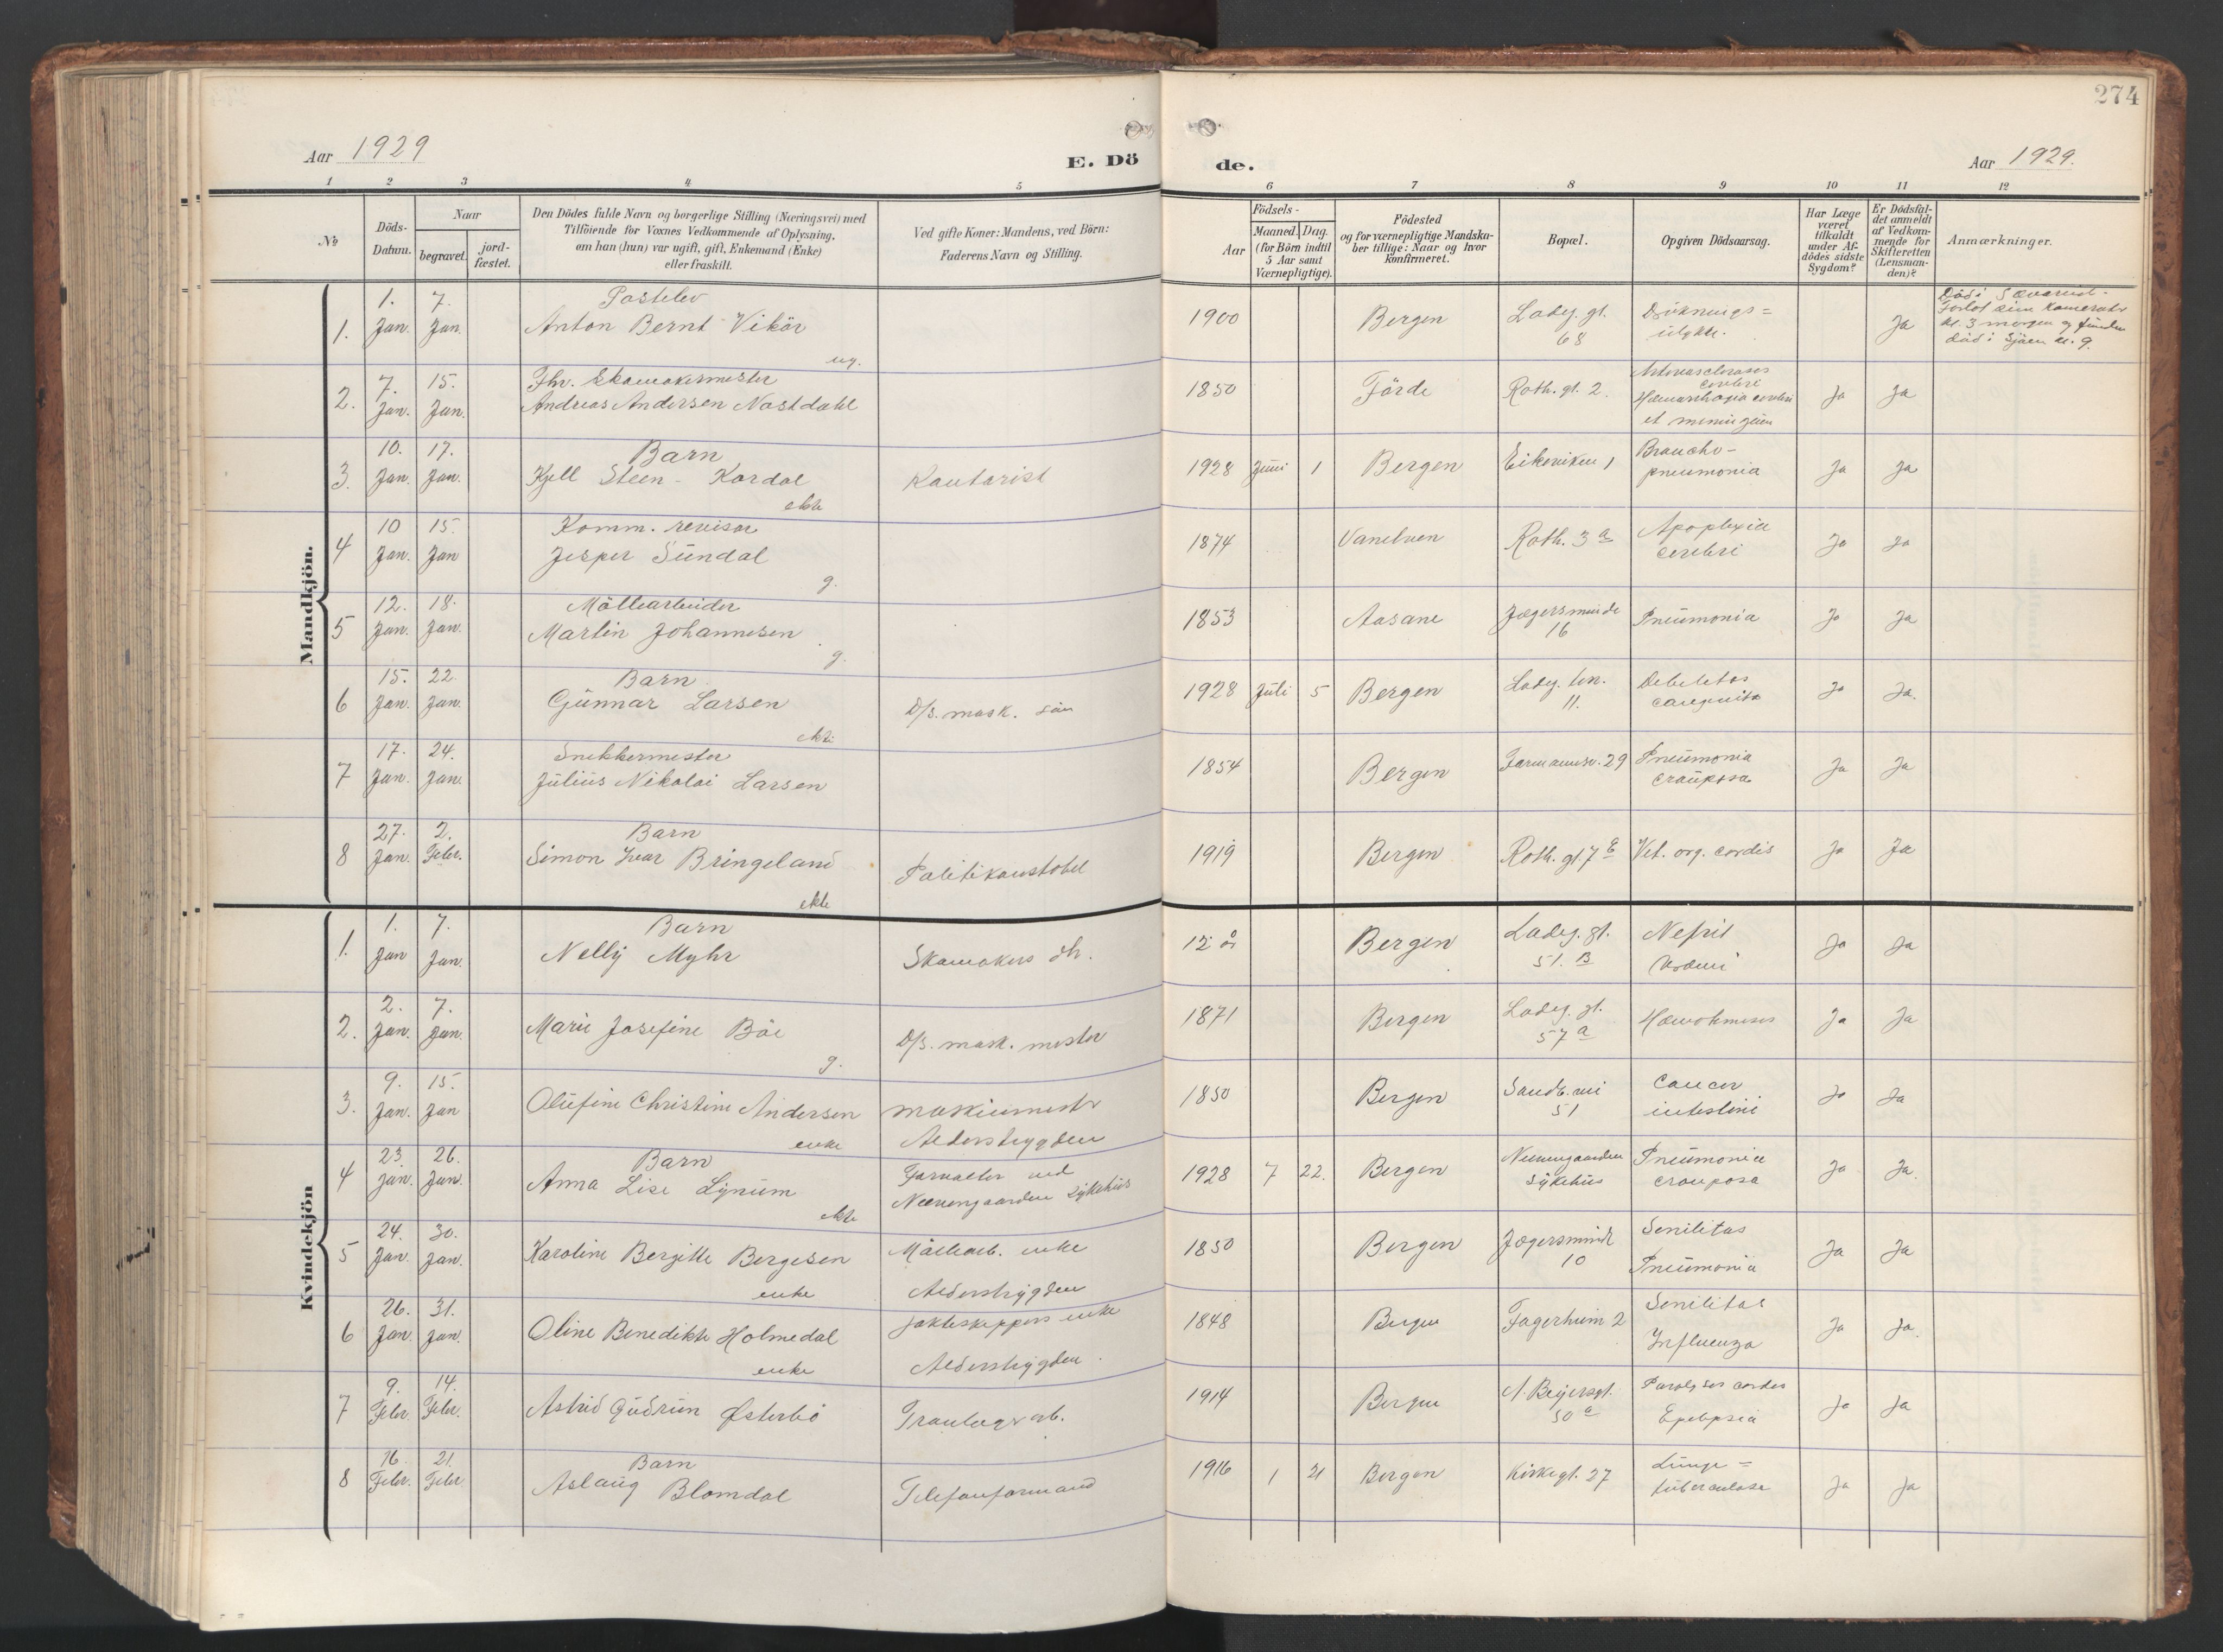 274
Aar 1929
E. Dö
de.
Aar 1929.
1 2 3 4 5 6 7 8 9 10 11 12
№
Döds-
Datum.
Naar
begravet.
jord-
fæstet.
Den Dödes fulde Navn og borgerlige Stilling (Næringsvei) med
Tilföiende for Voxnes Vedkommende af Oplysning,
om han (hun) var ugift, gift, Enkemand (Enke)
eller fraskilt.
Ved gifte Koner: Mandens, ved Börn:
Faderens Navn og Stilling.
Födsels-
Aar
Maaned. Dag.
(for Börn indtil
5 Aar samt
Værnepligtige).
Födested
og for værnepligtige Mandska-
ber tillige: Naar og hvor
konfirmeret.
Bopæl.
Opgiven Dödsaarsag.
Har Læge
været
tilkaldt
under Af-
dödes sidste
Sygdom?
Er Dödsfal-
det anmeldt
af Vedkom-
mende for
Skifteretten
(Lensman-
den)?
Anmærkninger.
Mandkjön.
1. 1. Jan. 7. Jan.
Anton Bernt Vikör
ug.
1900 Bergen Ladeg. gt. 68
Druknings=
ulykke.
Ja
kl. 3 morgen og funden
död i Sjöen kl. 9.
2. 7. Jan. 15. Jan.
Fhv. Skomakermester
Andreas Andersen Nostdahl
1850 Förde Roth. gt. 2.
cerebri
et meningeum
Ja Ja
3. 10. Jan. 17. Jan.
Barn
Kjell Steen-Kordal
ekte
Kontorist
1928 Juni 1 Bergen Eikeviken 1
Broncho-
pneumonia
Ja Ja
4 10 Jan. 15. Jan
Komm. revisor
Jesper Sundal
g.
1874 Vanelven Roth. 3 a
Apoplexia
cerebri
Ja Ja
5 12. Jan. 18. Jan.
Möllearbeider
Martin Johannesen
g.
1853 Aasane Jægersminde 16
Pneumonia
Ja Ja
6 15. Jan. 22. Jan.
Barn
Gunnar Larsen
ekte
D/s. mask. sön
1928 Juli 5 Bergen Ladeg. 11.
Ja Ja.
7 17. Jan. 24. Jan.
Snekkermester
Julius Nikolai Larsen
1854 Bergen 29
Pneumonia
crouposa
Ja Ja
8 27. Jan. 2. Febr.
Barn
Simon Ivar Bringeland
ekte
Politikonstabel
1919 Bergen Roth. gt. 7
Vit. org. cordis
Ja Ja
Kvindekjön
1. 1. Jan 7. Jan.
Barn
Nelly Myhr
Skomakers dtr.
12 år Bergen Ladeg. gt. 51. B
Nefrit
Ja Ja
2. 2. Jan. 7. Jan.
Marie Josefine Böe
g.
D/s. mask. mester
1871 Bergen Ladeg. gt. 57 a
Ja Ja
3. 9. Jan. 15. Jan
Olufine Christine Andersen
enke
maskinmester
Alderstrygden
1850 Bergen Sandb.vei 51
Cancer
intestini
Ja Ja
4 23. Jan. 26. Jan.
Barn
Anna Lise Lynum
ekte
Forvalter ved
Neevengaarden sykehus
1928 7 22. Bergen Neevengaarden
sykehus
Pneumonia
crouposa
Ja Ja.
5 24. Jan. 30. Jan.
Karoline Bergitte Bergesen
enke
Möllearb. enke
Alderstrygden
1850 Bergen Jægersminde 10
Senilitas
Pneumonia
Ja Ja
6 26. Jan. 31. Jan.
Oline Benedikte Holmedal
enke
Jakteskippers enke
Alderstrygden.
1848 Bergen Fagerheim 2
Senilitas
Influenza
Ja Ja.
7 9. Febr. 14. Febr.
Astrid Gudrun Österbö
1914 Bergen 50 a
Paralysis cordis
Epelepsia
Ja Ja
8 16 Febr. 21. Febr.
Barn
Aslaug Blomdal
Telefonformand
1916 1 21 Bergen Kirkegt. 27
Lunge=
tuberculose
Ja Ja